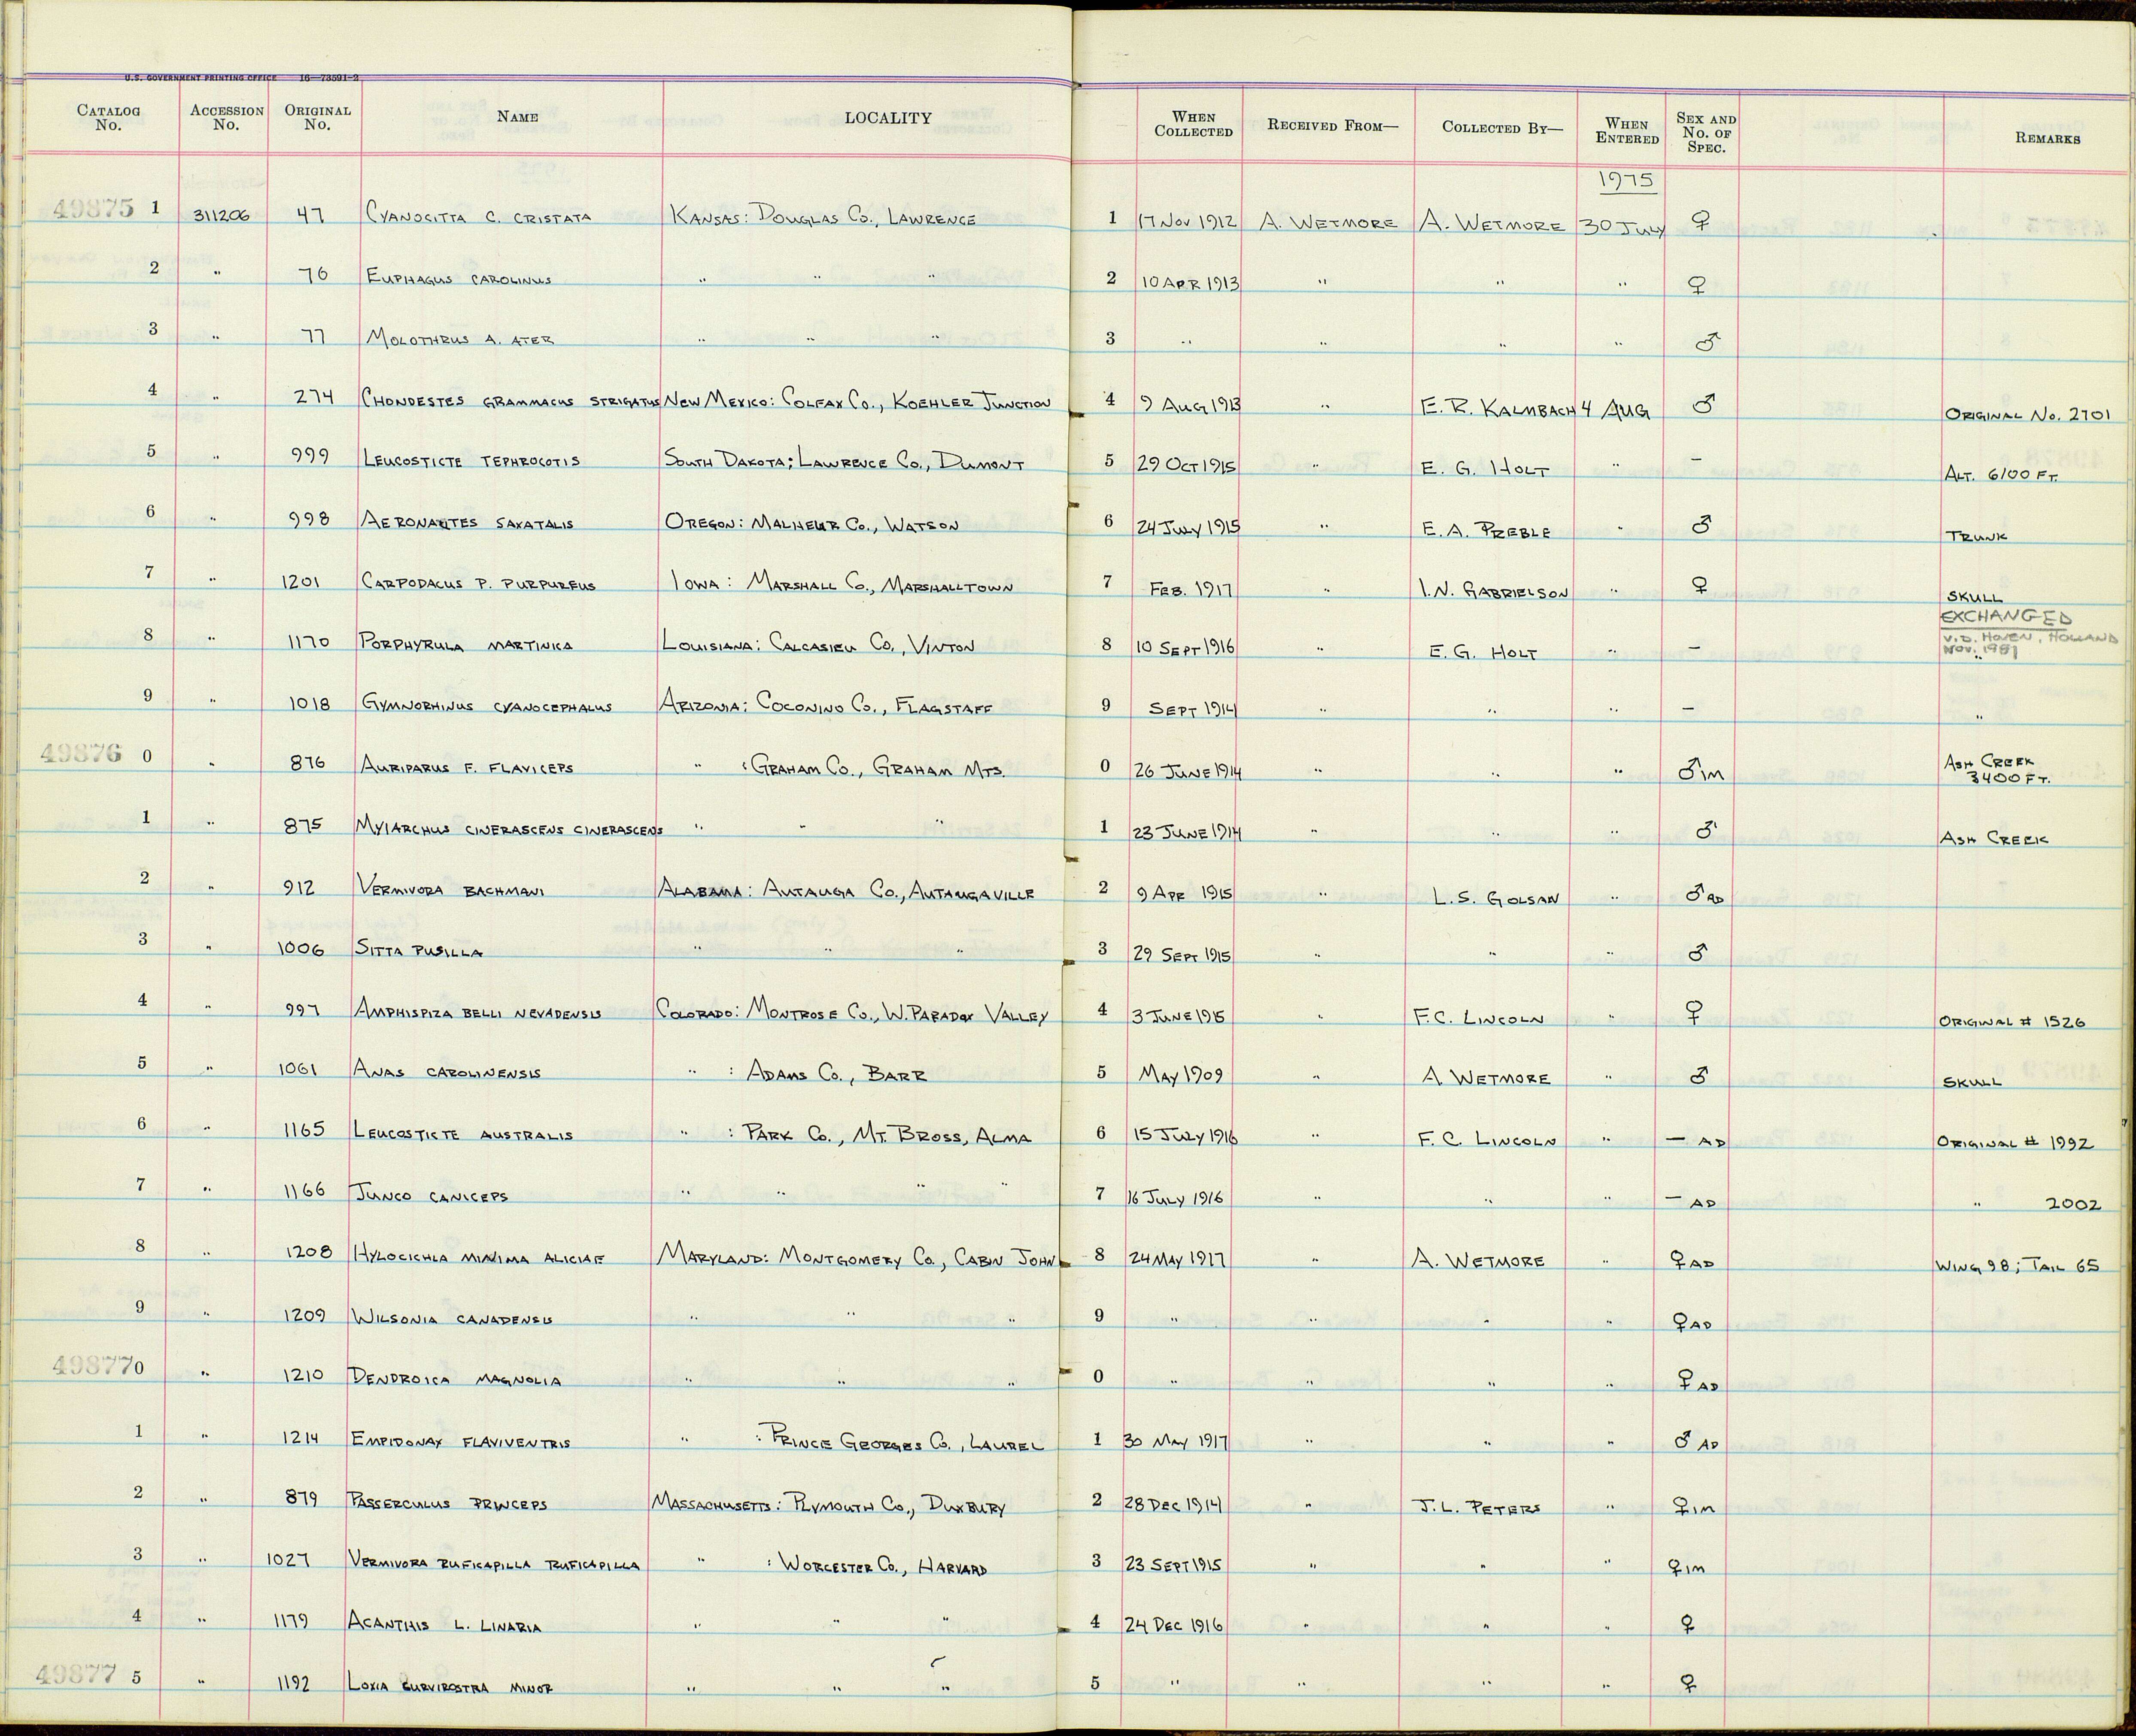 U.S. GOVERNMENT PRINTING OFFICE 16—73591-2
CATALOG No. ACCESSION No. ORIGINAL No. NAME LOCALITY WHEN COLLECTED RECEIVED FROM— COLLECTED BY— WHEN ENTERED SEX AND No. OF SPEC. REMARKS
1975
49875 1 311206 47 CYANOCITTA C. CRISTATA KANSAS: DOUGLAS CO., LAWRENCE 1 17 NOV 1912 A. WETMORE A. WETMORE 30 JULY ♀
2 " 76 EUPHAGUS CAROLINUS " " " 2 10 APR 1913 " " " ♀
3 " 77 MOLOTHRUS A. ATER " " " 3 " " " " ♂
4 " 274 CHONDESTES GRAMMACUS STRIGATUS NEW MEXICO: COLFAX CO., KOEHLER JUNCTION 4 9 AUG 1913 " E. R. KALMBACH 4 AUG ♂ ORIGINAL NO. 2701
5 " 999 LEUCOSTICTE TEPHROCOTIS SOUTH DAKOTA; LAWRENCE CO., DUMONT 5 29 OCT 1915 " E. G. HOLT " — ALT. 6100 FT.
6 " 998 AERONAUTES SAXATALIS OREGON: MALHEUR CO., WATSON 6 24 JULY 1915 " E. A. PREBLE " ♂ TRUNK
7 " 1201 CARPODACUS P. PURPUREUS IOWA: MARSHALL CO., MARSHALLTOWN 7 FEB. 1917 " I.N. GABRIELSON " ♀ SKULL
EXCHANGED
V.D. HOVEN, HOLLAND
NOV. 1981
8 " 1170 PORPHYRULA MARTINICA LOUISIANA: CALCASIEU CO., VINTON 8 10 SEPT 1916 " E. G. HOLT " — "
9 " 1018 GYMNORHINUS CYANOCEPHALUS ARIZONIA: COCONINO CO., FLAGSTAFF 9 SEPT 1914 " " " — "
49876 0 " 876 AURIPARUS F. FLAVICEPS " : GRAHAM CO., GRAHAM MTS. 0 26 JUNE 1914 " " " ♂ IM ASH CREEK
3400 FT.
1 " 875 MYIARCHUS CINERASCENS CINERASCENS " " " 1 23 JUNE 1914 " " " ♂ ASH CREEK
2 " 912 VERMIVORA BACHMANI ALABAMA: AUTAUGA CO., AUTAUGAVILLE 2 9 APR 1915 " L.S. GOLSAN " ♂ AD
3 " 1006 SITTA PUSILLA " " " 3 29 SEPT 1915 " " " ♂
4 " 997 AMPHISPIZA BELLI NEVADENSIS COLORADO: MONTROSE CO., W. PARADOX VALLEY 4 3 JUNE 1915 " F.C. LINCOLN " ♀ ORIGINAL # 1526
5 " 1061 ANAS CAROLINENSIS " : ADAMS CO., BARR 5 MAY 1909 " A. WETMORE " ♂ SKULL
6 " 1165 LEUCOSTICTE AUSTRALIS " : PARK CO., MT. BROSS, ALMA 6 15 JULY 1916 " F. C. LINCOLN " — AD ORIGINAL # 1992
7 " 1166 JUNCO CANICEPS " " " " 7 16 JULY 1916 " " " — AD " 2002
8 " 1208 HYLOCICHLA MINIMA ALICIAE MARYLAND: MONTGOMERY CO., CABIN JOHN 8 24 MAY 1917 " A. WETMORE " ♀ AD WING 98; TAIL 65
9 " 1209 WILSONIA CANADENSIS " " " 9 " " " " ♀ AD
49877 0 " 1210 DENDROICA MAGNOLIA " " " 0 " " " " ♀ AD
1 " 1214 EMPIDONAX FLAVIVENTRIS " : PRINCE GEORGES CO., LAUREL 1 30 MAY 1917 " " " ♂ AD
2 " 879 PASSERCULUS PRINCEPS MASSACHUSETTS: PLYMOUTH CO., DUXBURY 2 28 DEC 1914 " J.L. PETERS " ♀ IM
3 " 1027 VERMIVORA RUFICAPILLA RUFICAPILLA " : WORCESTER CO., HARVARD 3 23 SEPT 1915 " " " ♀ IM
4 " 1179 ACANTHIS L. LINARIA " " " 4 24 DEC 1916 " " " ♀
49877 5 " 1192 LOXIA CURVIROSTRA MINOR " " " 5 " " " " ♀